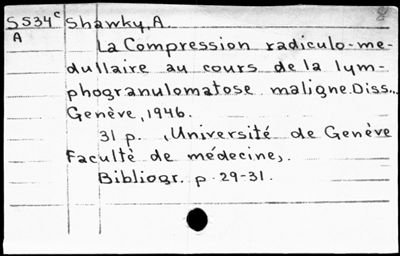 S534c Shawky, A.
A
La Compression radiculo-me-
dullaire au cours de la lym-
phogranulomatose maligne. Diss..
Genève, 1946.
31 p. (Université de Genève
Faculté de médecine).
Bibliogr. p. 29-31.